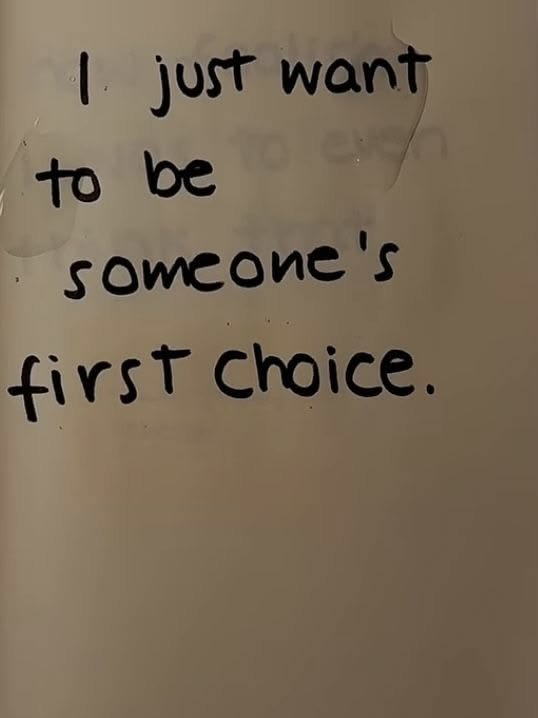 I just want
to be
someone's
first choice.